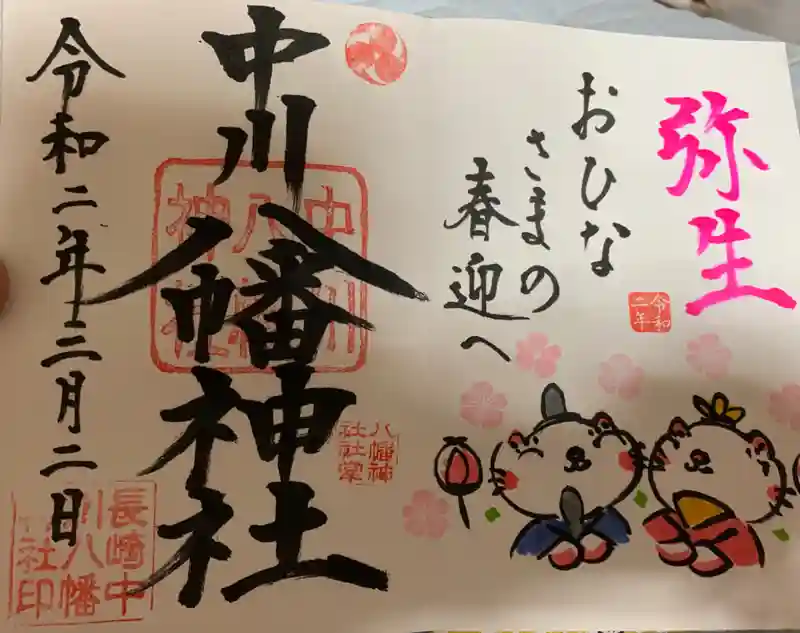 弥生
おひな
さまの
春迎へ
令和
二年
中川八幡神社
中川
八幡
神社
八幡神
社社掌
令和二年三月二日
長崎中
川八幡
社印